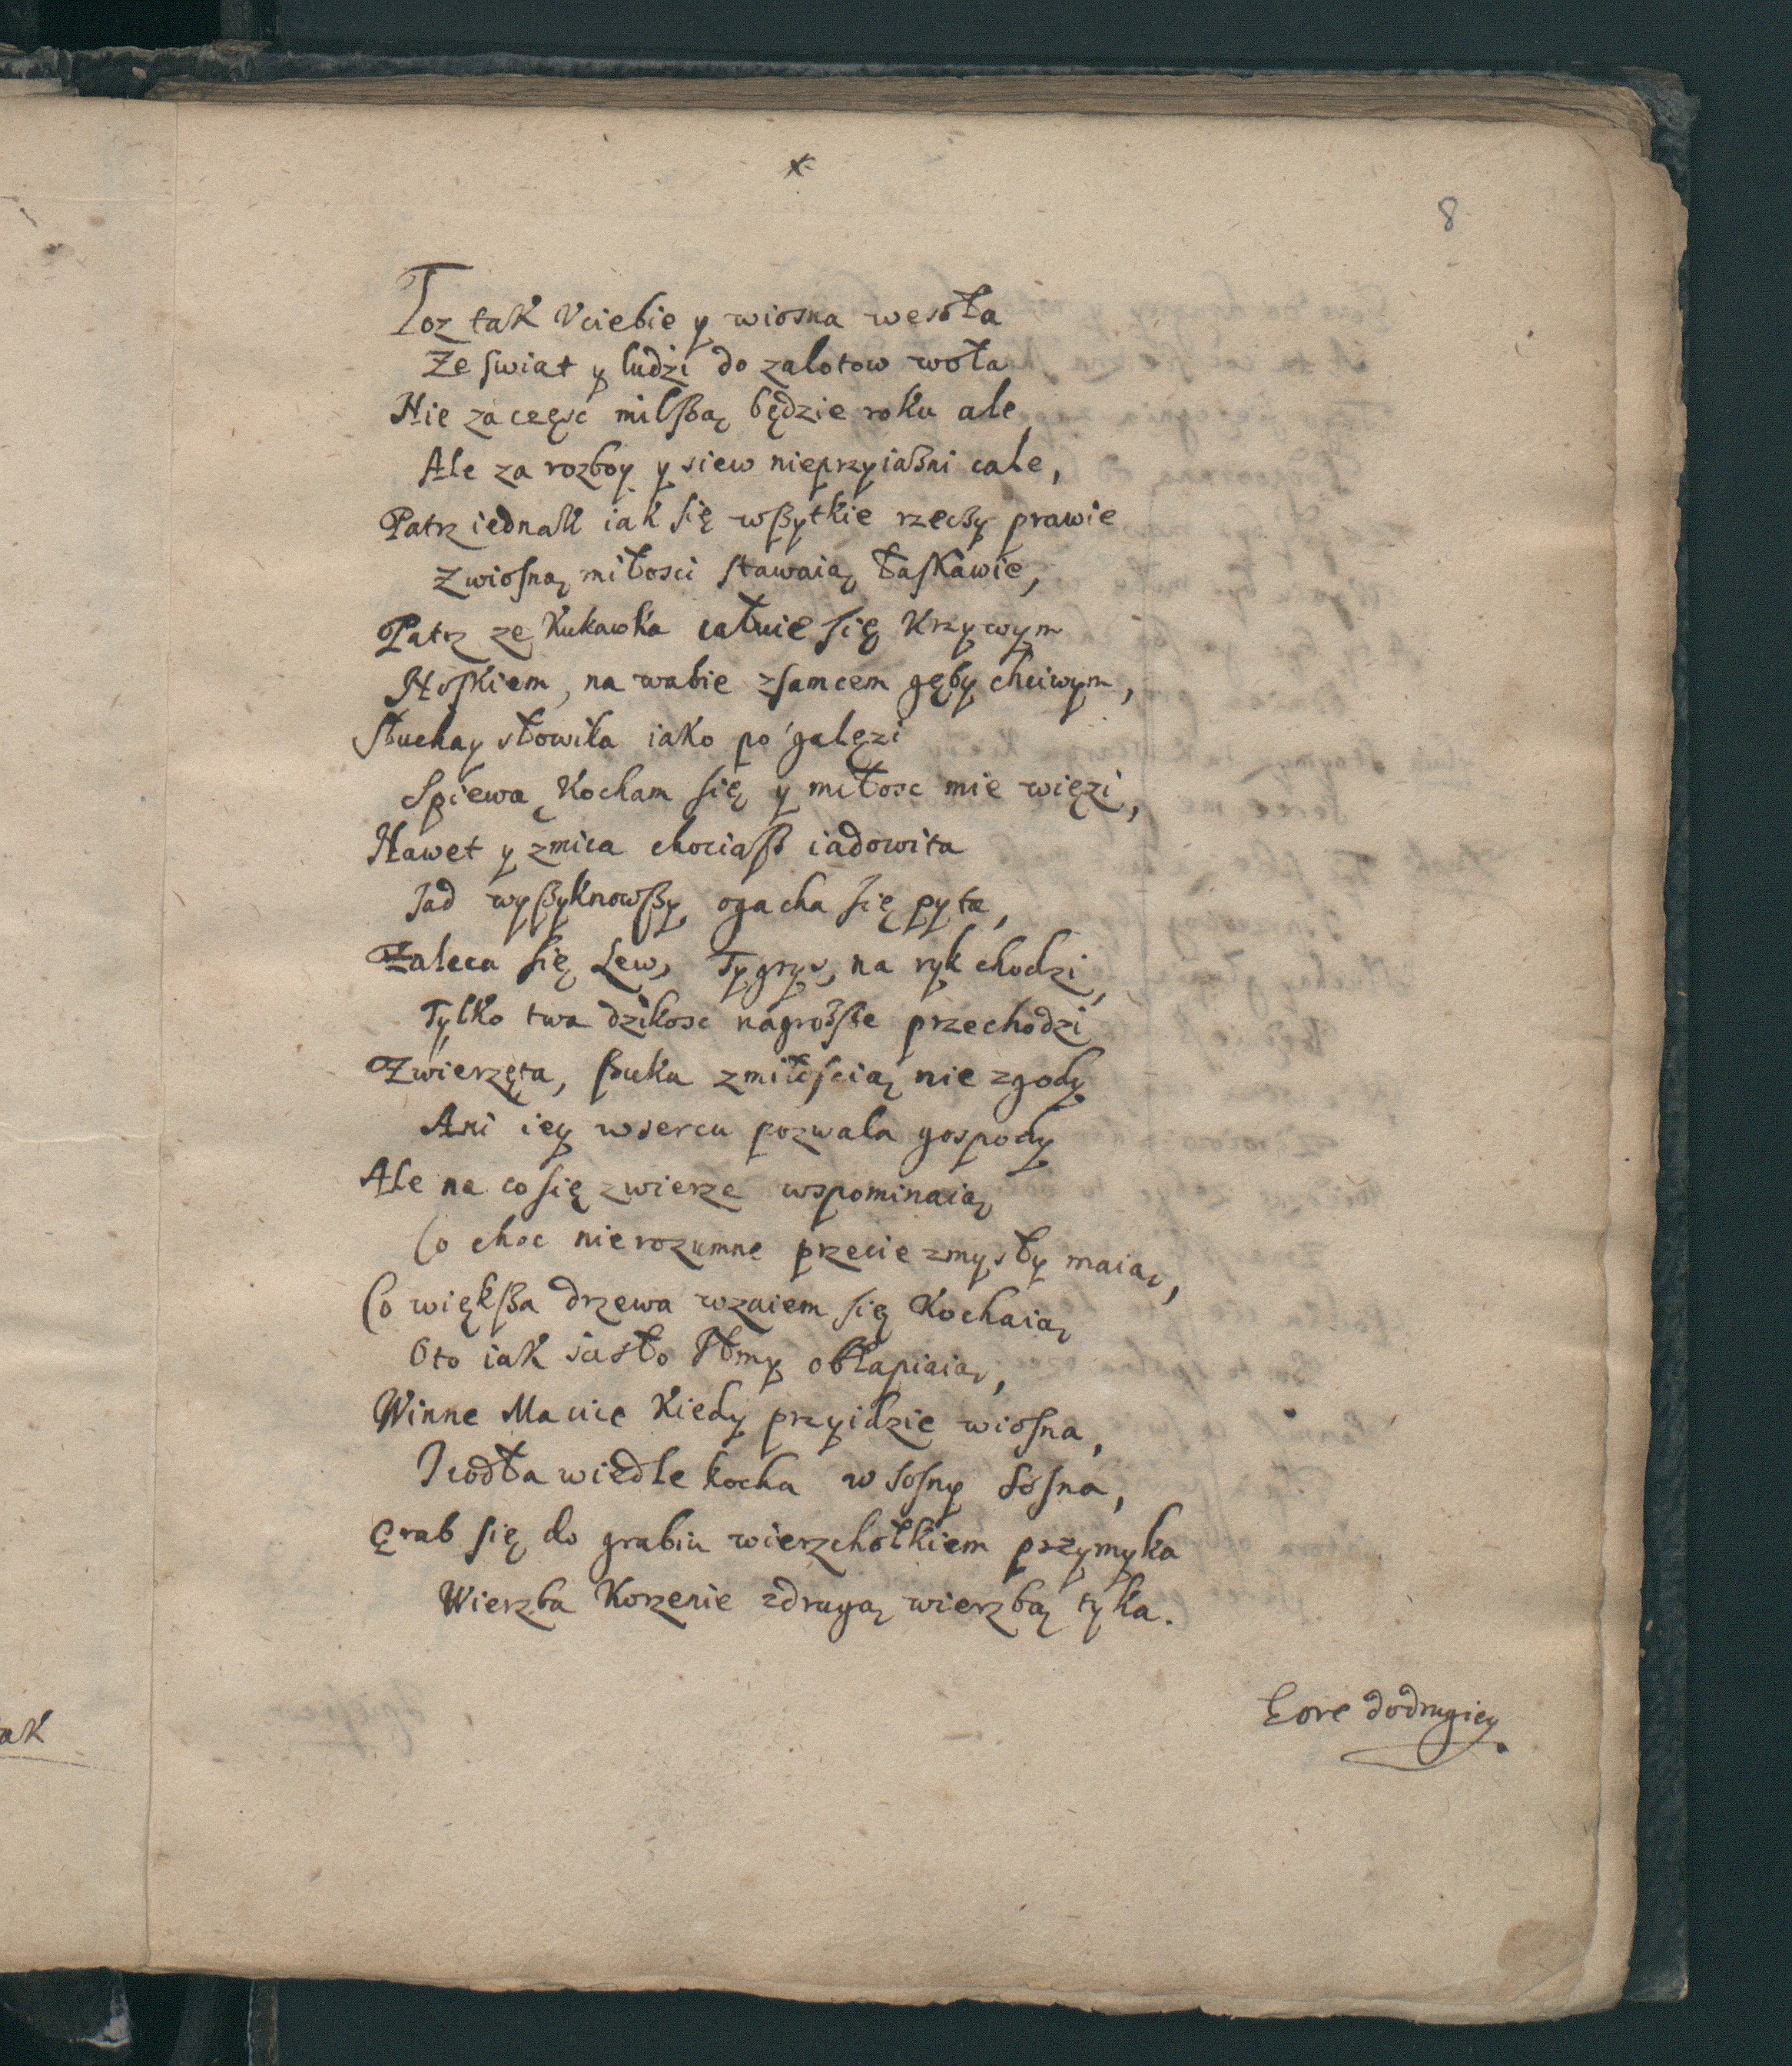 8
Toz tak Vciebie y wiosna wesoła
Ze swiat y ludzi do zalotow woła
Nie za częsc milßą będzie roku ale
Ale za rozboy y siew nieprzyiaßni cale,
Patrz iednak iak się wßytkie rzeczy prawie
Zwiosną miłosci stawaią łaskawie,
Patrz ze Kukawka całuie się Krzywym
Noskiem, na wabie zsamcem gęby chciwym,
Słuchay słowika iako po galęzi
Spiewa Kocham się y miłosc mie więzi,
Nawet y zmiia chociaß iadowita
Iad wyßyknowßy ogacha się pyta,
Zaleca się Lew, Tygrys, na ryk chodzi,
Tylko twa dzikosc nagroßße przechodzi
Zwierzęta, ßuka zmiłoscią nie zgody
Ani iey wsercu pozwala gospody
Ale na co się zwierze wspominaią
Co choc nierozumne przecie zmysły maią,
Co większa drzewa wzaiem się Kochaią
Oto iak iasło obłapiaią,
Winne Macice Kiedy przyidzie wiosna,
Iodła wiedle kocha w sosny sosna,
Grab się do grabiu wierzchołkiem przymyka
Wierzba Korzenie zdrugą wierzbą tyka.
dodrugiey
ak